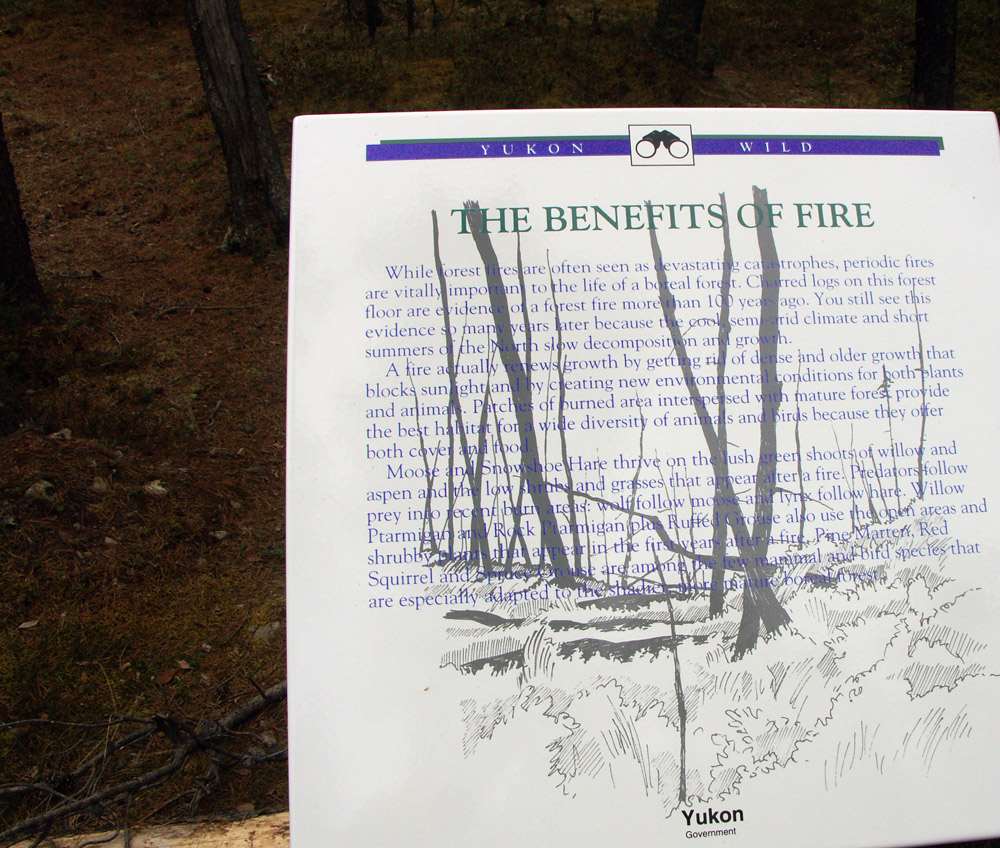 YUKON WILD
THE BENEFITS OF FIRE
While forest fires are often seen as devastating catastrophes, periodic fires
are vitally important to the life of a boreal forest. Charred logs on this forest
floor are evidence of a forest fire more than 100 years ago. You still see this
evidence so many years later because the cool, semi-arid climate and short
summers of the North slow decomposition and growth.
A fire actually renews growth by getting rid of dense and older growth that
blocks sunlight and by creating new environmental conditions for both plants
and animals. Patches of burned area interspersed with mature forest provide
the best habitat for a wide diversity of animals and birds because they offer
both cover and food.
Moose and Snowshoe Hare thrive on the lush green shoots of willow and
aspen and the low shrubs and grasses that appear after a fire. Predators follow
prey into recent burn areas: wolf follow moose and lynx follow hare. Willow
Ptarmigan and Rock Ptarmigan plus Ruffed Grouse also use the open areas and
shrubby plants that appear in the first years after a fire. Pine Marten, Red
Squirrel and Spruce Grouse are among the few mammal and bird species that
are especially adapted to the shadier, more mature boreal forest.
Yukon
Government